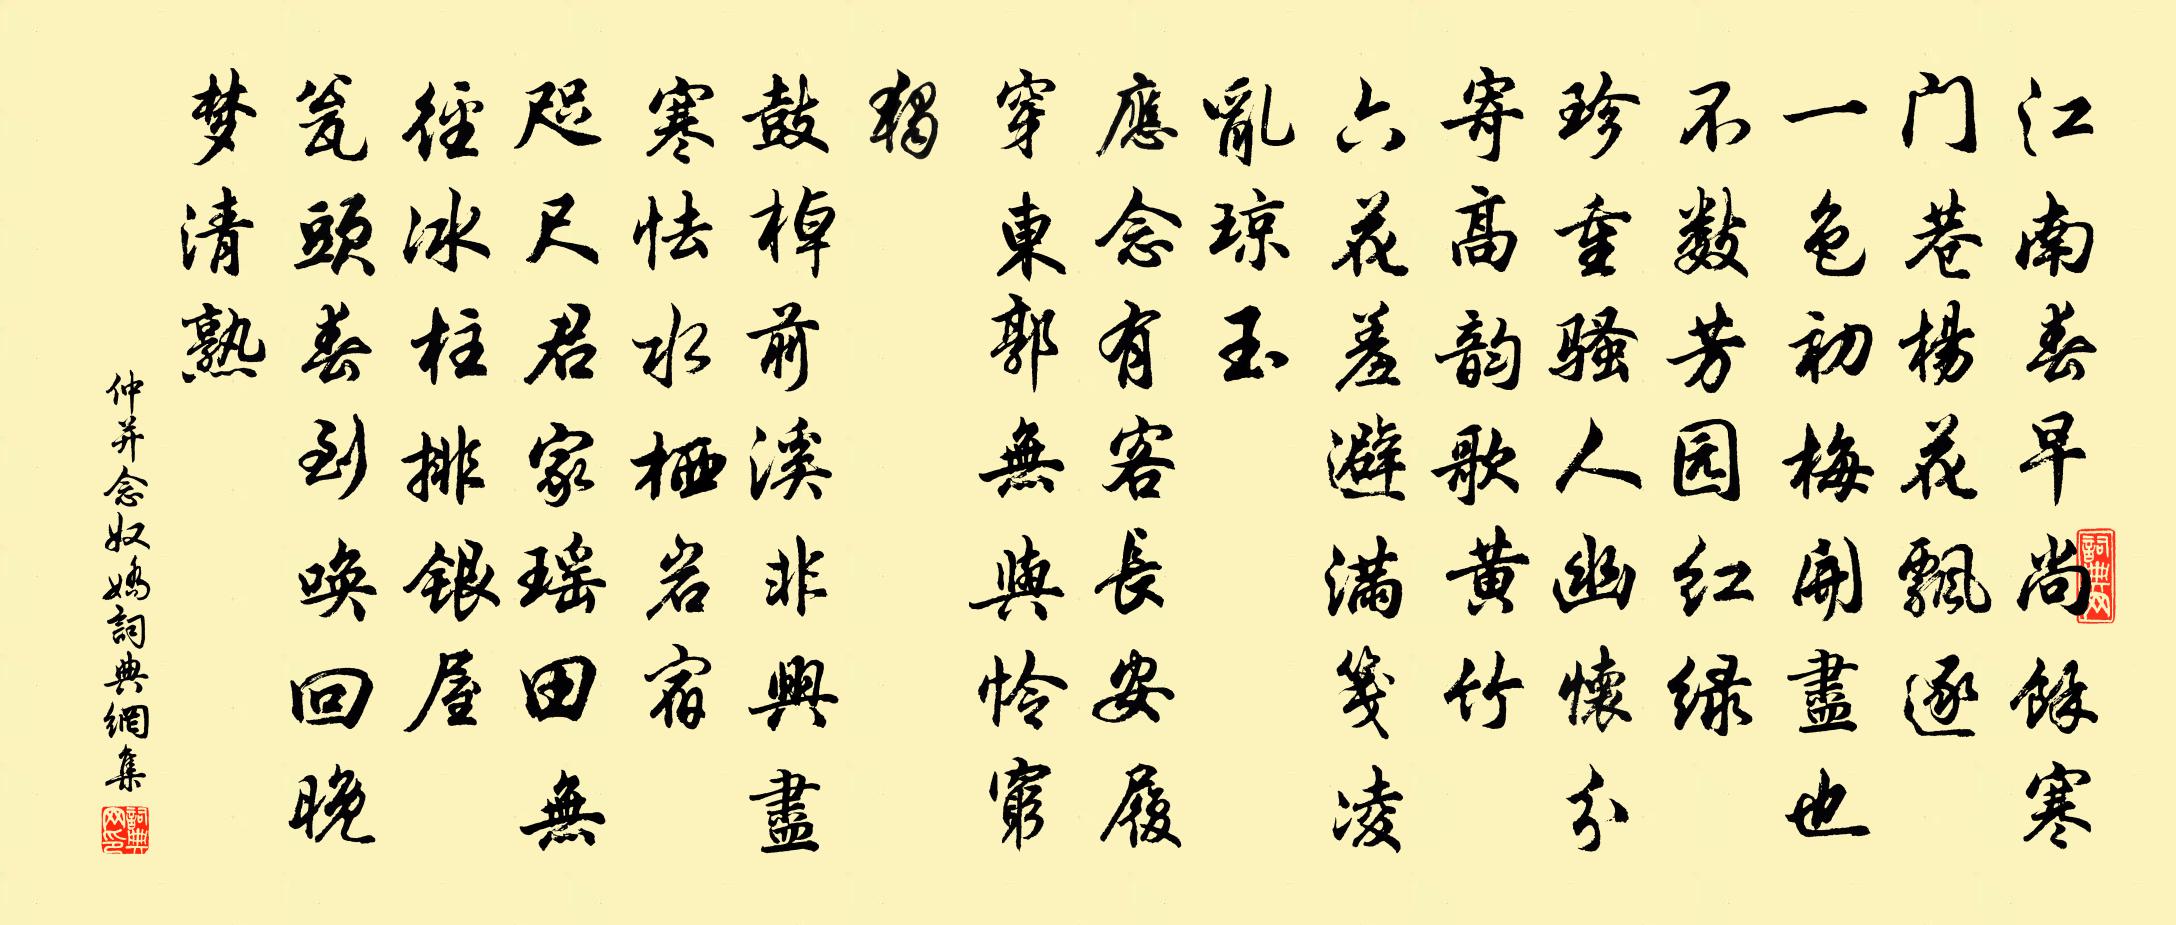 江南春早尚餘寒
门巷楊花飄逐
一色初梅開盡也
不数芳园红绿
珍重騷人幽懷分
寄高韵歌黄竹
六花羞避滿箋凌
亂琼玉
應念有客長安履
穿東郭無與怜窮
獨
鼓棹前溪非興盡
寒怯水栖岩宿
咫尺君家瑶田無
徑冰柱排銀屋
瓮頭春到唤回晚
梦清熟
仲并念奴嬌詞典網集
詞典网
詞典网印